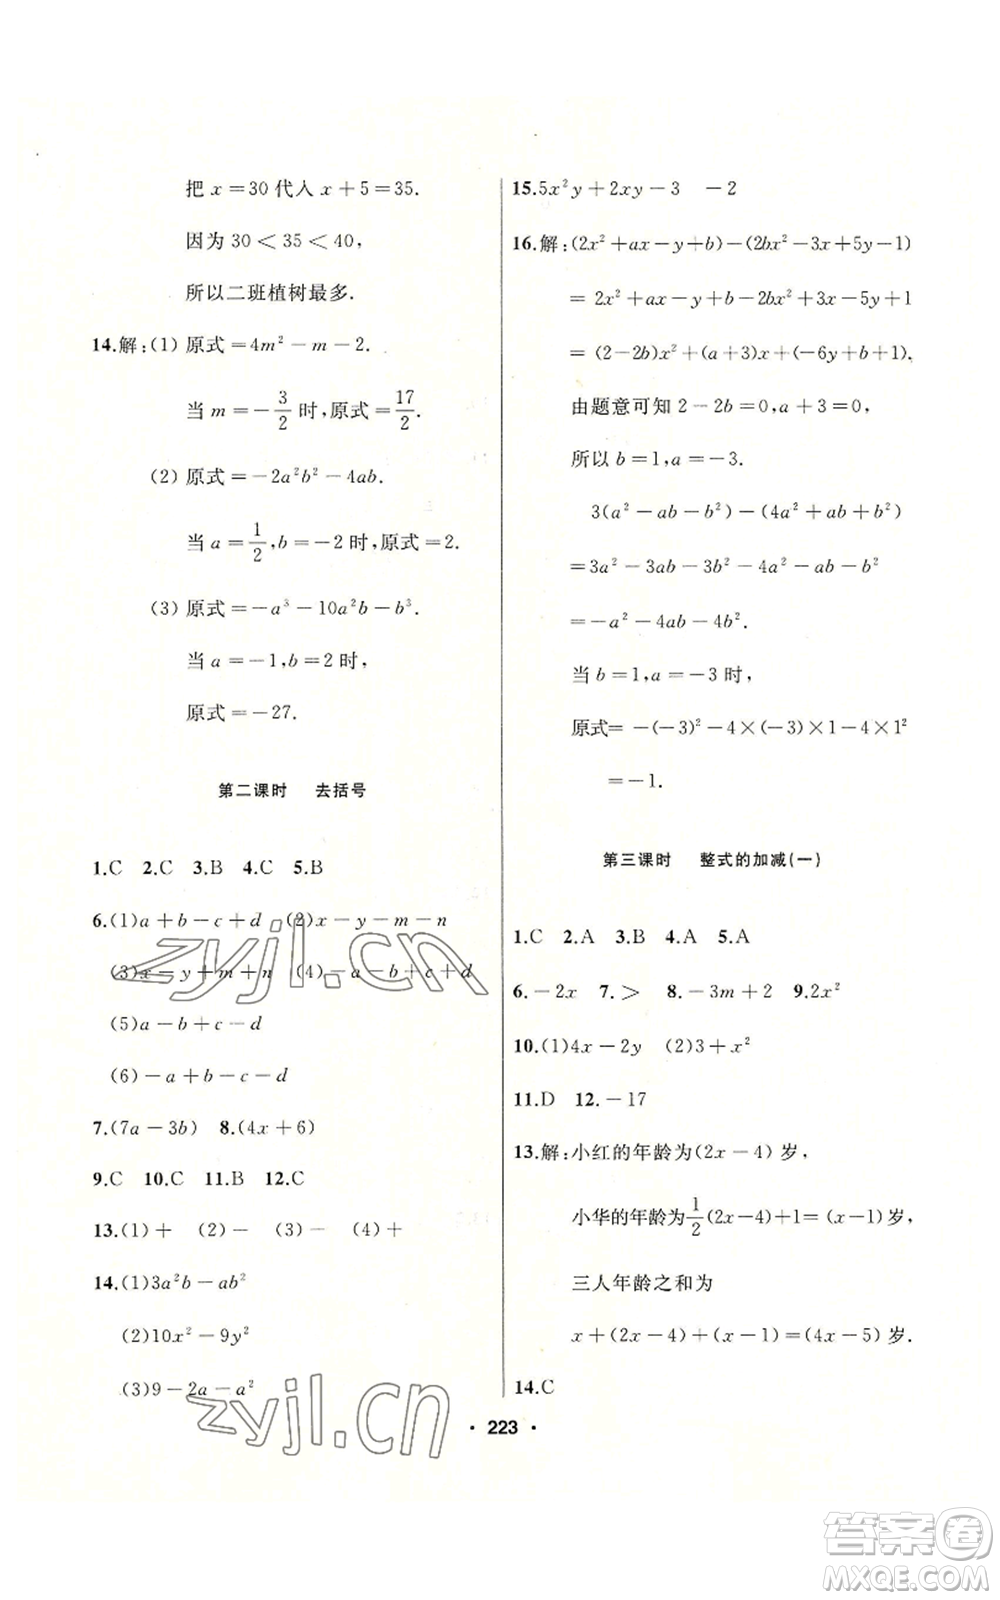 把 x＝30 代入 x＋5＝35.
因为 30＜35＜40,
所以二班植树最多.
14.解:(1) 原式＝4m²－m－2.
当 m＝－3/2 时,原式＝17/2.
(2) 原式＝－2a²b²－4ab.
当 a＝1/2,b＝－2 时,原式＝2.
(3) 原式＝－a³－10a²b－b³.
当 a＝－1,b＝2 时,
原式＝－27.
第二课时 去括号
1.C 2.C 3.B 4.C 5.B
6.(1)a＋b－c＋d (2)x－y－m－n
(3)x－y＋m＋n (4)－a－b＋c＋d
(5)a－b＋c－d
(6)－a＋b－c－d
7.(7a－3b) 8.(4x＋6)
9.C 10.C 11.B 12.C
13.(1)＋ (2)－ (3)－ (4)＋
14.(1)3a²b－ab²
(2)10x²－9y²
(3)9－2a－a²
15.5x²y＋2xy－3 －2
16.解:(2x²＋ax－y＋b)－(2bx²－3x＋5y－1)
＝2x²＋ax－y＋b－2bx²＋3x－5y＋1
＝(2－2b)x²＋(a＋3)x＋(－6y＋b＋1),
由题意可知 2－2b＝0,a＋3＝0,
所以 b＝1,a＝－3.
3(a²－ab－b²)－(4a²＋ab＋b²)
＝3a²－3ab－3b²－4a²－ab－b²
＝－a²－4ab－4b².
当 b＝1,a＝－3 时,
原式＝－(－3)²－4×(－3)×1－4×1²
＝－1.
第三课时 整式的加减(一)
1.C 2.A 3.B 4.A 5.A
6.－2x 7.＞ 8.－3m＋2 9.2x²
10.(1)4x－2y (2)3＋x²
11.D 12.－17
13.解:小红的年龄为(2x－4)岁,
小华的年龄为1/2(2x－4)＋1＝(x－1)岁,
三人年龄之和为
x＋(2x－4)＋(x－1)＝(4x－5)岁.
14.C
· 223 ·
zyjl.cn
zyjl.cn
答案卷
MXQE.COM